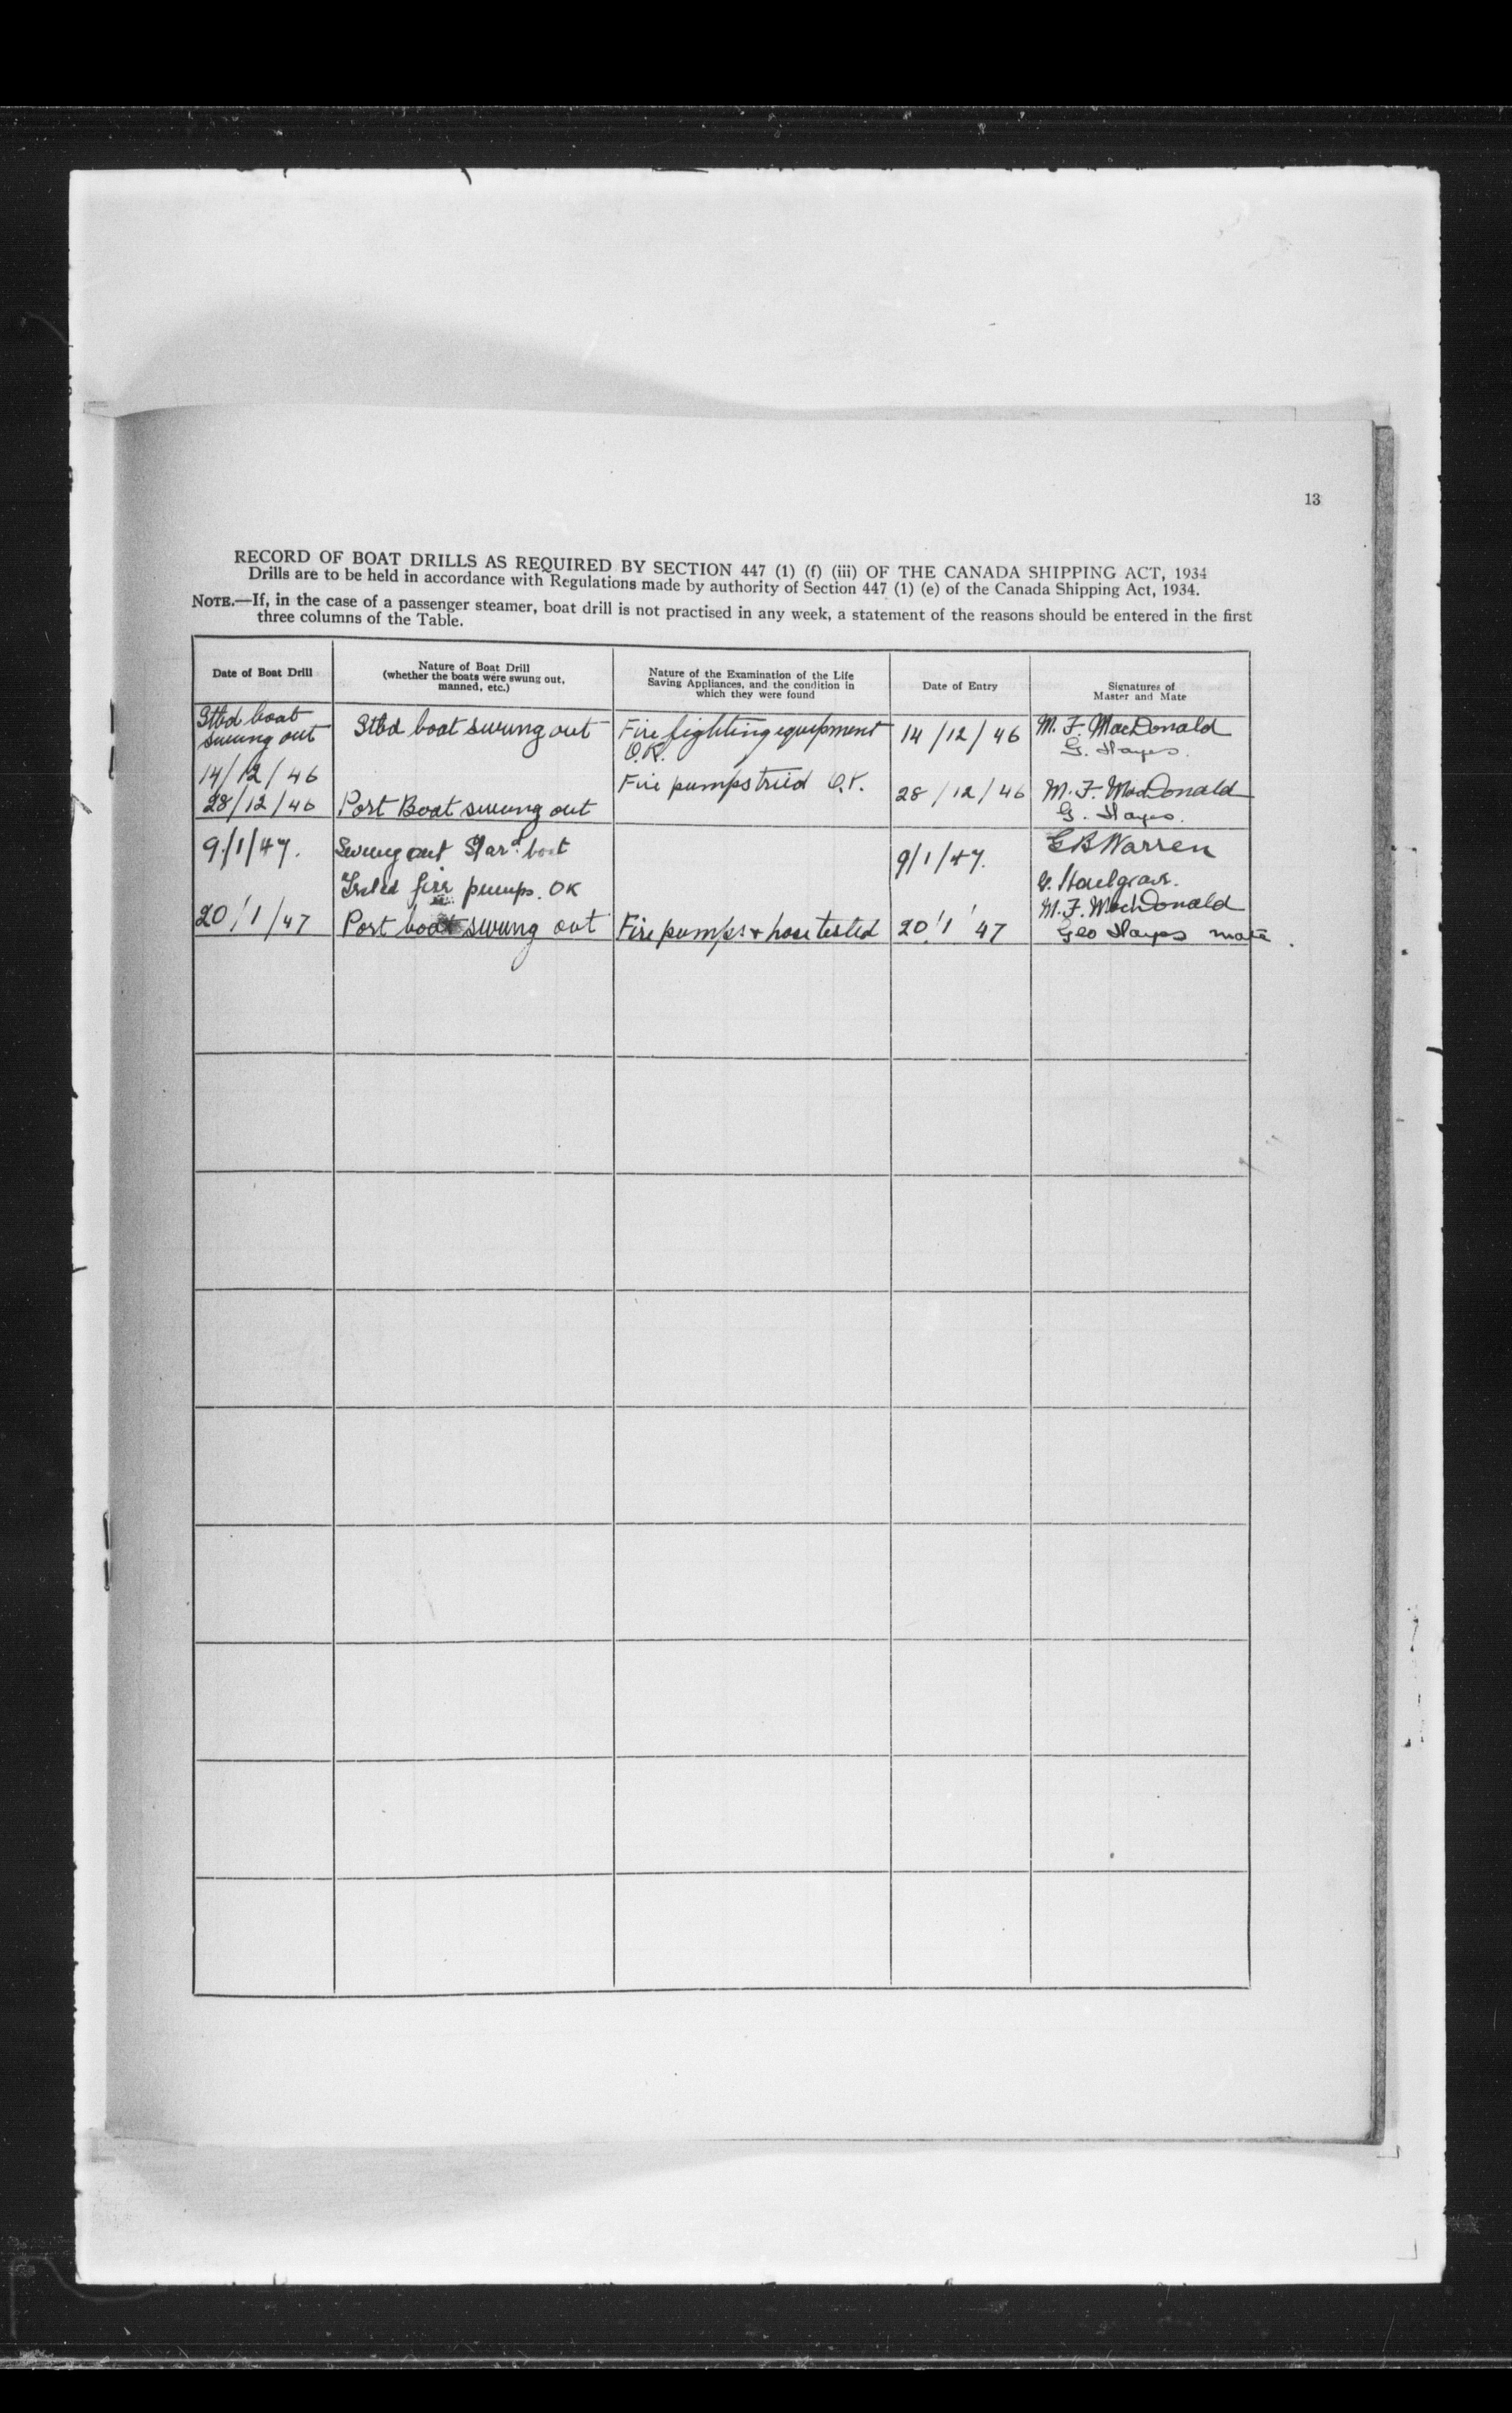 13
RECORD OF BOAT DRILLS AS REQUIRED BY SECTION 447 (1) (f) (iii) OF THE CANADA SHIPPING ACT, 1934
Drills are to be held in accordance with Regulations made by authority of Section 447 (1) (e) of the Canada Shipping Act, 1934.
NOTE.—If, in the case of a passenger steamer, boat drill is not practised in any week, a statement of the reasons should be entered in the first
three columns of the Table.
Date of Boat Drill
Nature of Boat Drill
(whether the boats were swung out,
manned, etc.)
Nature of the Examination of the Life
Saving Appliances, and the condition in
which they were found
Date of Entry
Signatures of
Master and Mate
Stbd boat
swung out
14/12/46
Stbd boat swung out
Fire fighting equipment
O.K.
14/12/46
M. F. MacDonald
G. Hayes.
28/12/46
Port Boat swung out
Fire pumps tried O.K.
28/12/46
M. F. MacDonald
G. Hayes.
9/1/47.
Swung out Starᵈ boat
Tested fire pumps. OK
9/1/47.
G B Warren
20/1/47
Port boat swung out
Fire pumps + hose tested
20/1 47
M. F. MacDonald
Geo Hayes mate